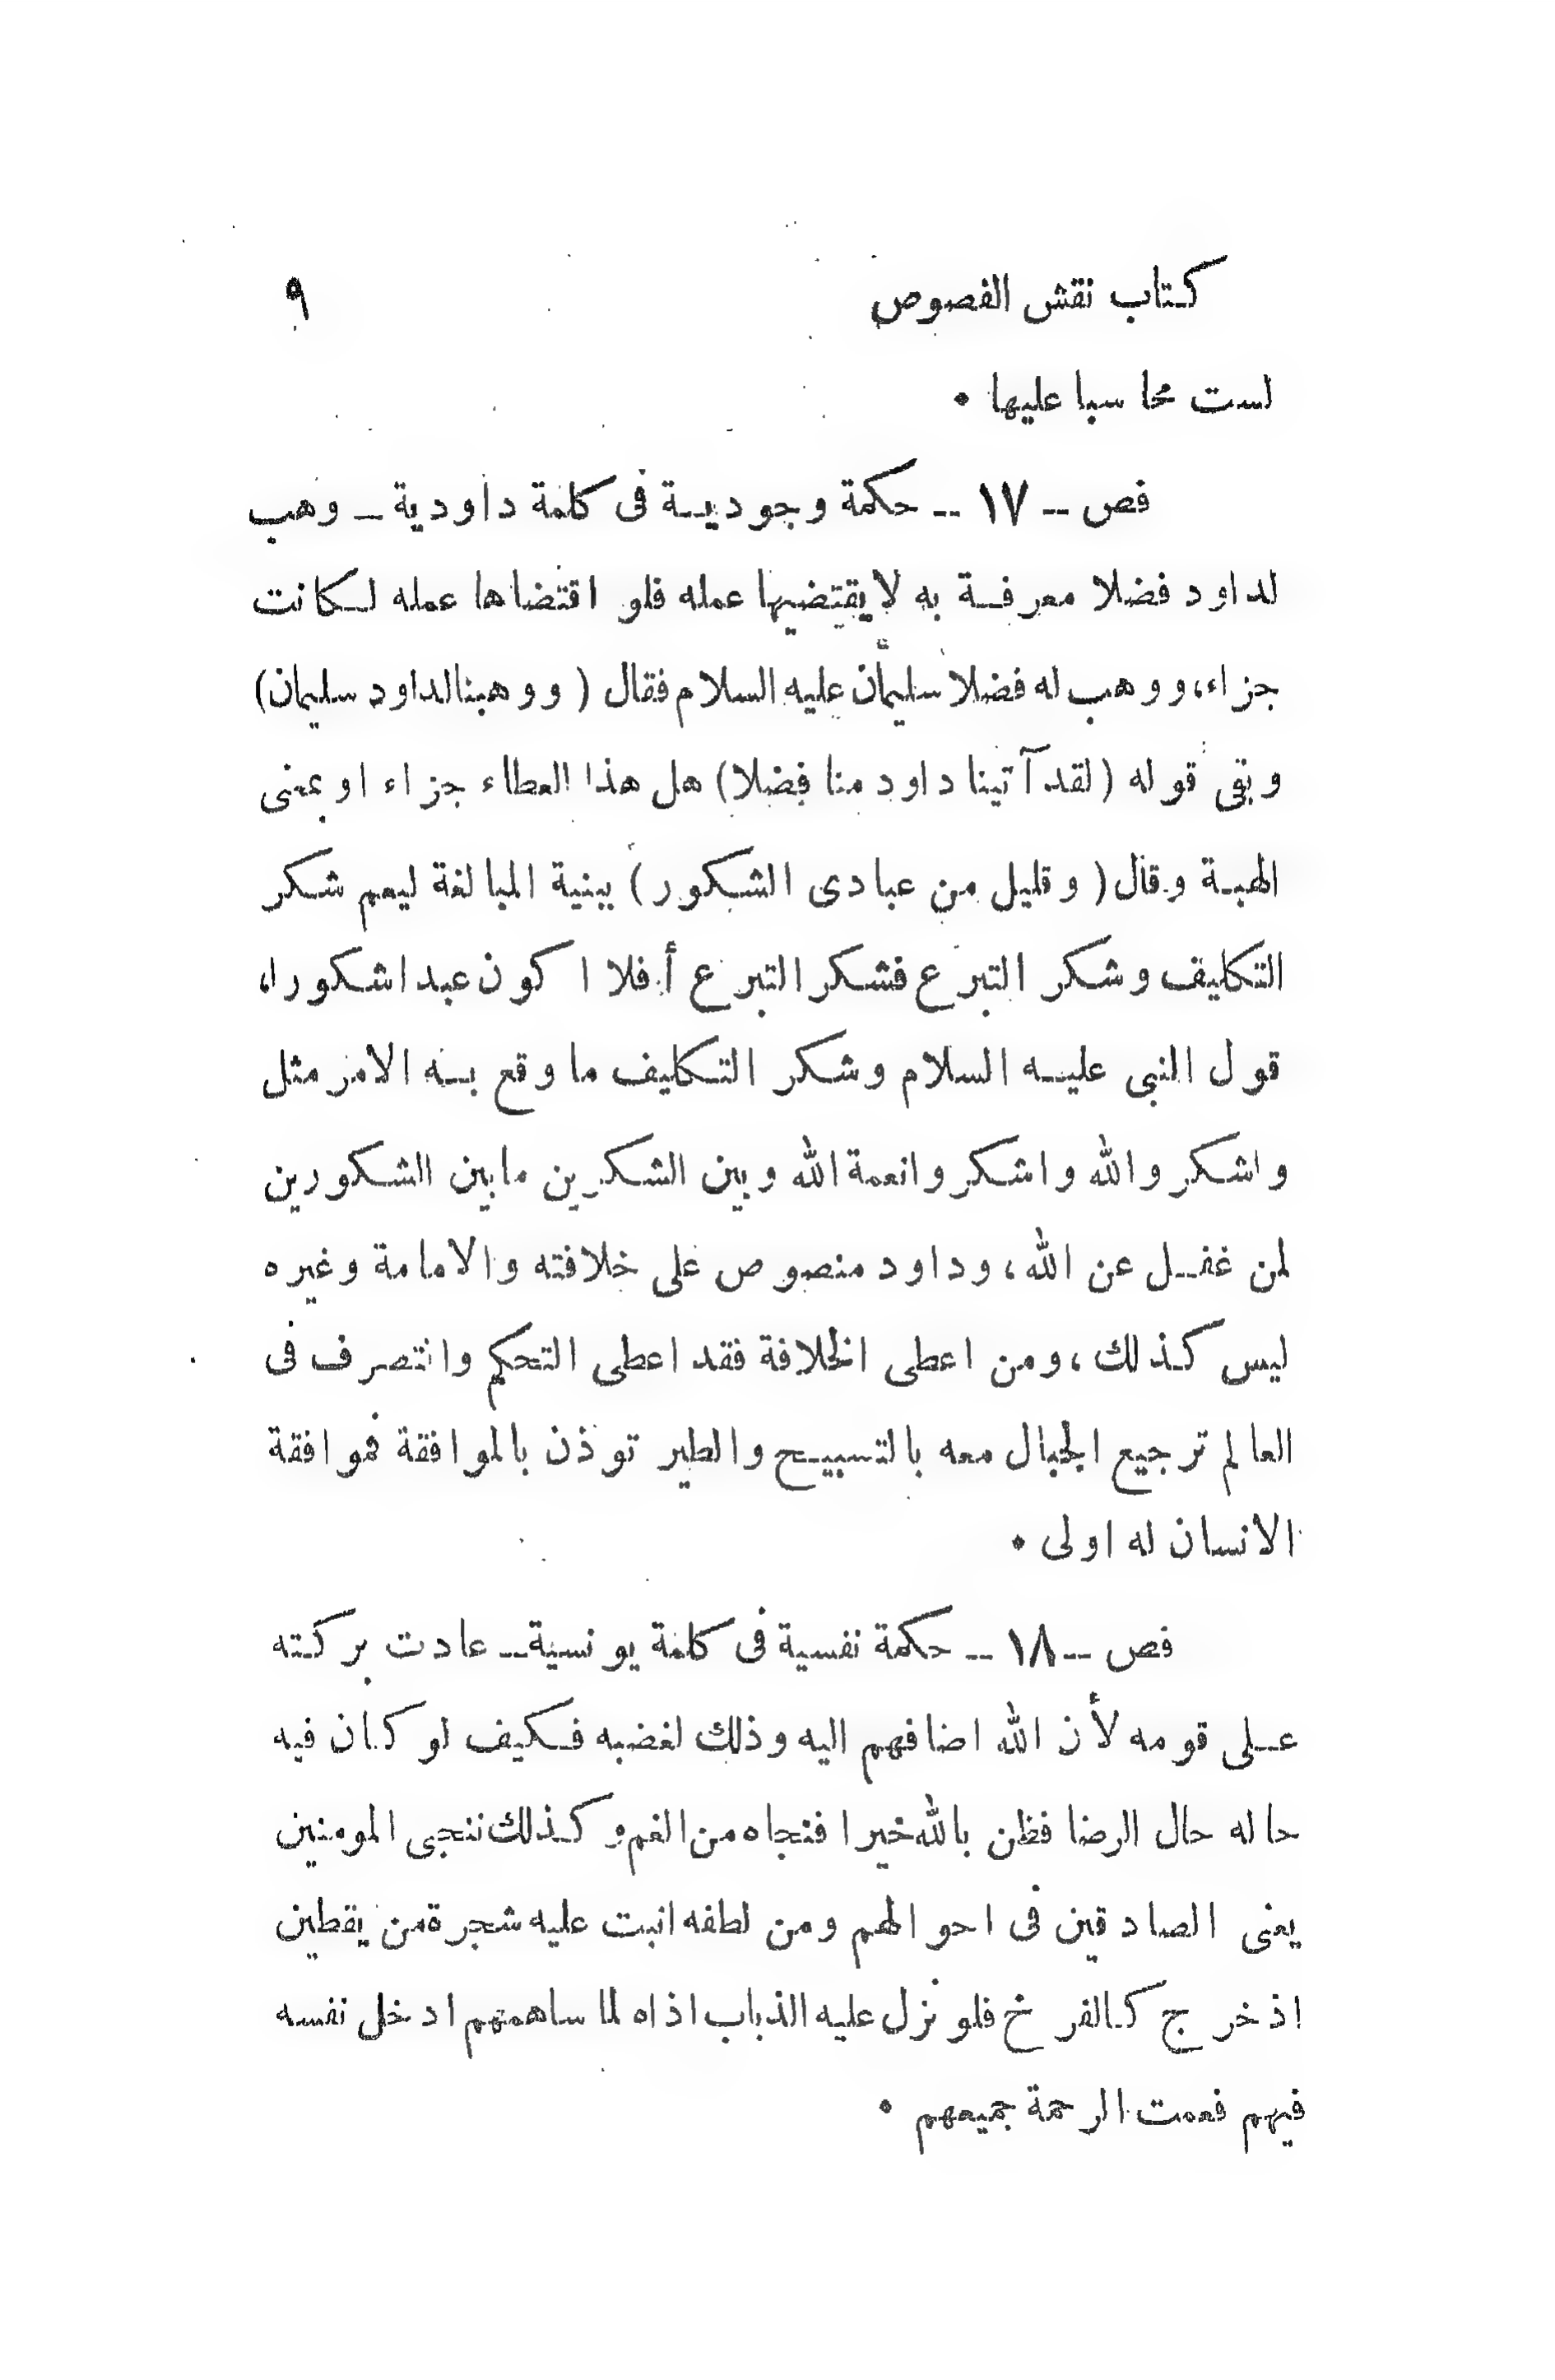 كتاب نقش الفصوص ٩
لست محاسبا عليها •
فص -- ١٧ -- حكمة وجودية فى كلمة داودية – وهب
لداود فضلا معرفة به لايقتضيها عمله فلو اقتضاها عمله لكانت
جزاء، ووهب له فضلا سليمان عليه السلام فقال (ووهبنا لداود سليمان)
وبقى قوله (لقد آتينا داود منا فضلا) هل هذا العطاء جزاء او بمعنى
الهبة وقال (وقليل من عبادى الشكور) ببنية المبالغة ليعم شكر
التكليف وشكر التبرع فشكر التبرع أفلا اكون عبدا شكورا،
قول النبى عليه السلام وشكر التكليف ما وقع به الامر مثل
واشكروالله واشكروا نعمة الله وبين الشكرين مابين الشكورين
لمن غفل عن الله، وداود منصوص على خلافته والامامة وغيره
ليس كذلك، ومن اعطى الخلافة فقد اعطى التحكم وانتصرف فى
العالم ترجيع الجبال معه بالتسبيح والطير توذن بالموافقة فموافقة
الانسان له اولى •
فص -- ١٨ -- حكمة نفسية فى كلمة يونسية -- عادت بركته
على قومه لأن الله اضافهم اليه وذلك لغضبه فكيف لو كان فيه
حاله حال الرضا فظن بالله خيرا فنجاه من الغم وكذلك ننجى المومنين
يعنى الصادقين فى احوالهم ومن لطفه انبت عليه شجرة من يقطين
اذ خرج كالفرخ فلو نزل عليه الذباب اذاه لما ساهمهم ادخل نفسه
فيهم فعمت الرحمة جميعهم •